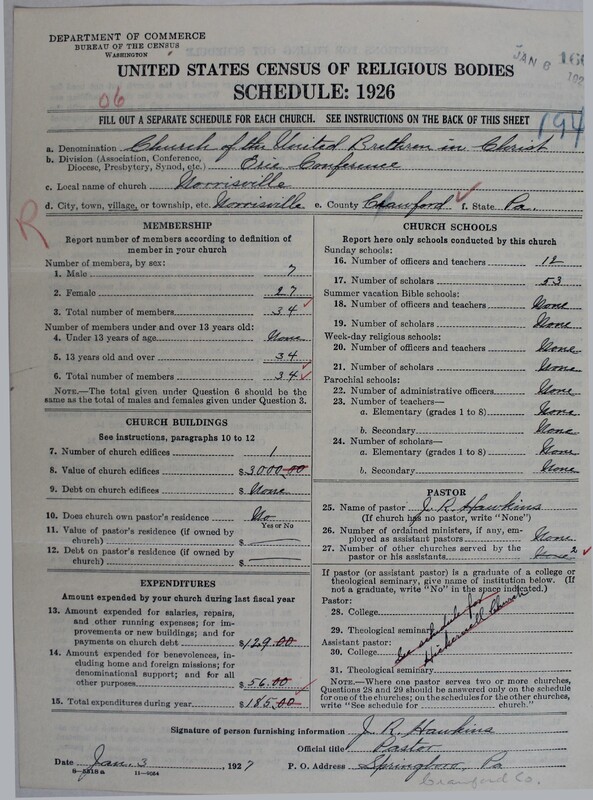 DEPARTMENT OF COMMERCE
BUREAU OF THE CENSUS
WASHINGTON
JAN 6
UNITED STATES CENSUS OF RELIGIOUS BODIES
SCHEDULE: 1926
06
FILL OUT A SEPARATE SCHEDULE FOR EACH CHURCH. SEE INSTRUCTIONS ON THE BACK OF THIS SHEET
194
a. Denomination Church of the United Brethren in Christ
b. Division (Association, Conference, Diocese, Presbytery, Synod, etc.) Erie Conference
c. Local name of church Norrisville
d. City, town, village, or township, etc. Norrisville e. County Crawford f. State Pa.
R
MEMBERSHIP
Report number of members according to definition of
member in your church
Number of members, by sex:
1. Male 7
2. Female 27
3. Total number of members 34
Number of members under and over 13 years old:
4. Under 13 years of age None
5. 13 years old and over 34
6. Total number of members 34
NOTE.—The total given under Question 6 should be
same as the total of males and females given under Question 3.
CHURCH BUILDINGS
See instructions, paragraphs 10 to 12
7. Number of church edifices 1
8. Value of church edifices $3000.00
9. Debt on church edifices $None
10. Does church own pastor's residence No
Yes or No
11. Value of pastor's residence (if owned by
church) $
12. Debt on pastor's residence (if owned by
church) $
EXPENDITURES
Amount expended by your church during last fiscal year
13. Amount expended for salaries, repairs,
and other running expenses; for im-
provements or new buildings; and for
payments on church debt $129.00
14. Amount expended for benevolences, in-
cluding home and foreign missions; for
denominational support; and for all
other purposes $56.00
15. Total expenditures during year $185.00
CHURCH SCHOOLS
Report here only schools conducted by this church
Sunday schools:
16. Number of officers and teachers 12
17. Number of scholars 53
Summer vacation Bible schools:
18. Number of officers and teachers None
19. Number of scholars None
Week-day religious schools:
20. Number of officers and teachers None
21. Number of scholars None
Parochial schools:
22. Number of administrative officers None
23. Number of teachers—
a. Elementary (grades 1 to 8) None
b. Secondary None
24. Number of scholars—
a. Elementary (grades 1 to 8) None
b. Secondary None
PASTOR
25. Name of pastor J. R. Hawkins
(If church has no pastor, write "None")
26. Number of ordained ministers, if any, em-
ployed as assistant pastors None
27. Number of other churches served by the
pastor or his assistants 2
If pastor (or assistant pastor) is a graduate of a college or
theological seminary, give name of institution below. (If
not a graduate, write "No" in the space indicated.)
Pastor:
28. College
29. Theological seminary
Assistant pastor:
30. College
31. Theological seminary
See schedule for
Church
NOTE.—Where one pastor serves two or more churches,
Questions 28 and 29 should be answered only on the schedule
for one of the churches; on the schedules for the other churches,
write "See schedule for church."
Signature of person furnishing information J. R. Hawkins
Official title Pastor
Date Jan. 3 1927 P. O. Address Springboro, Pa
8-5318 a 11-9064
Crawford Co.